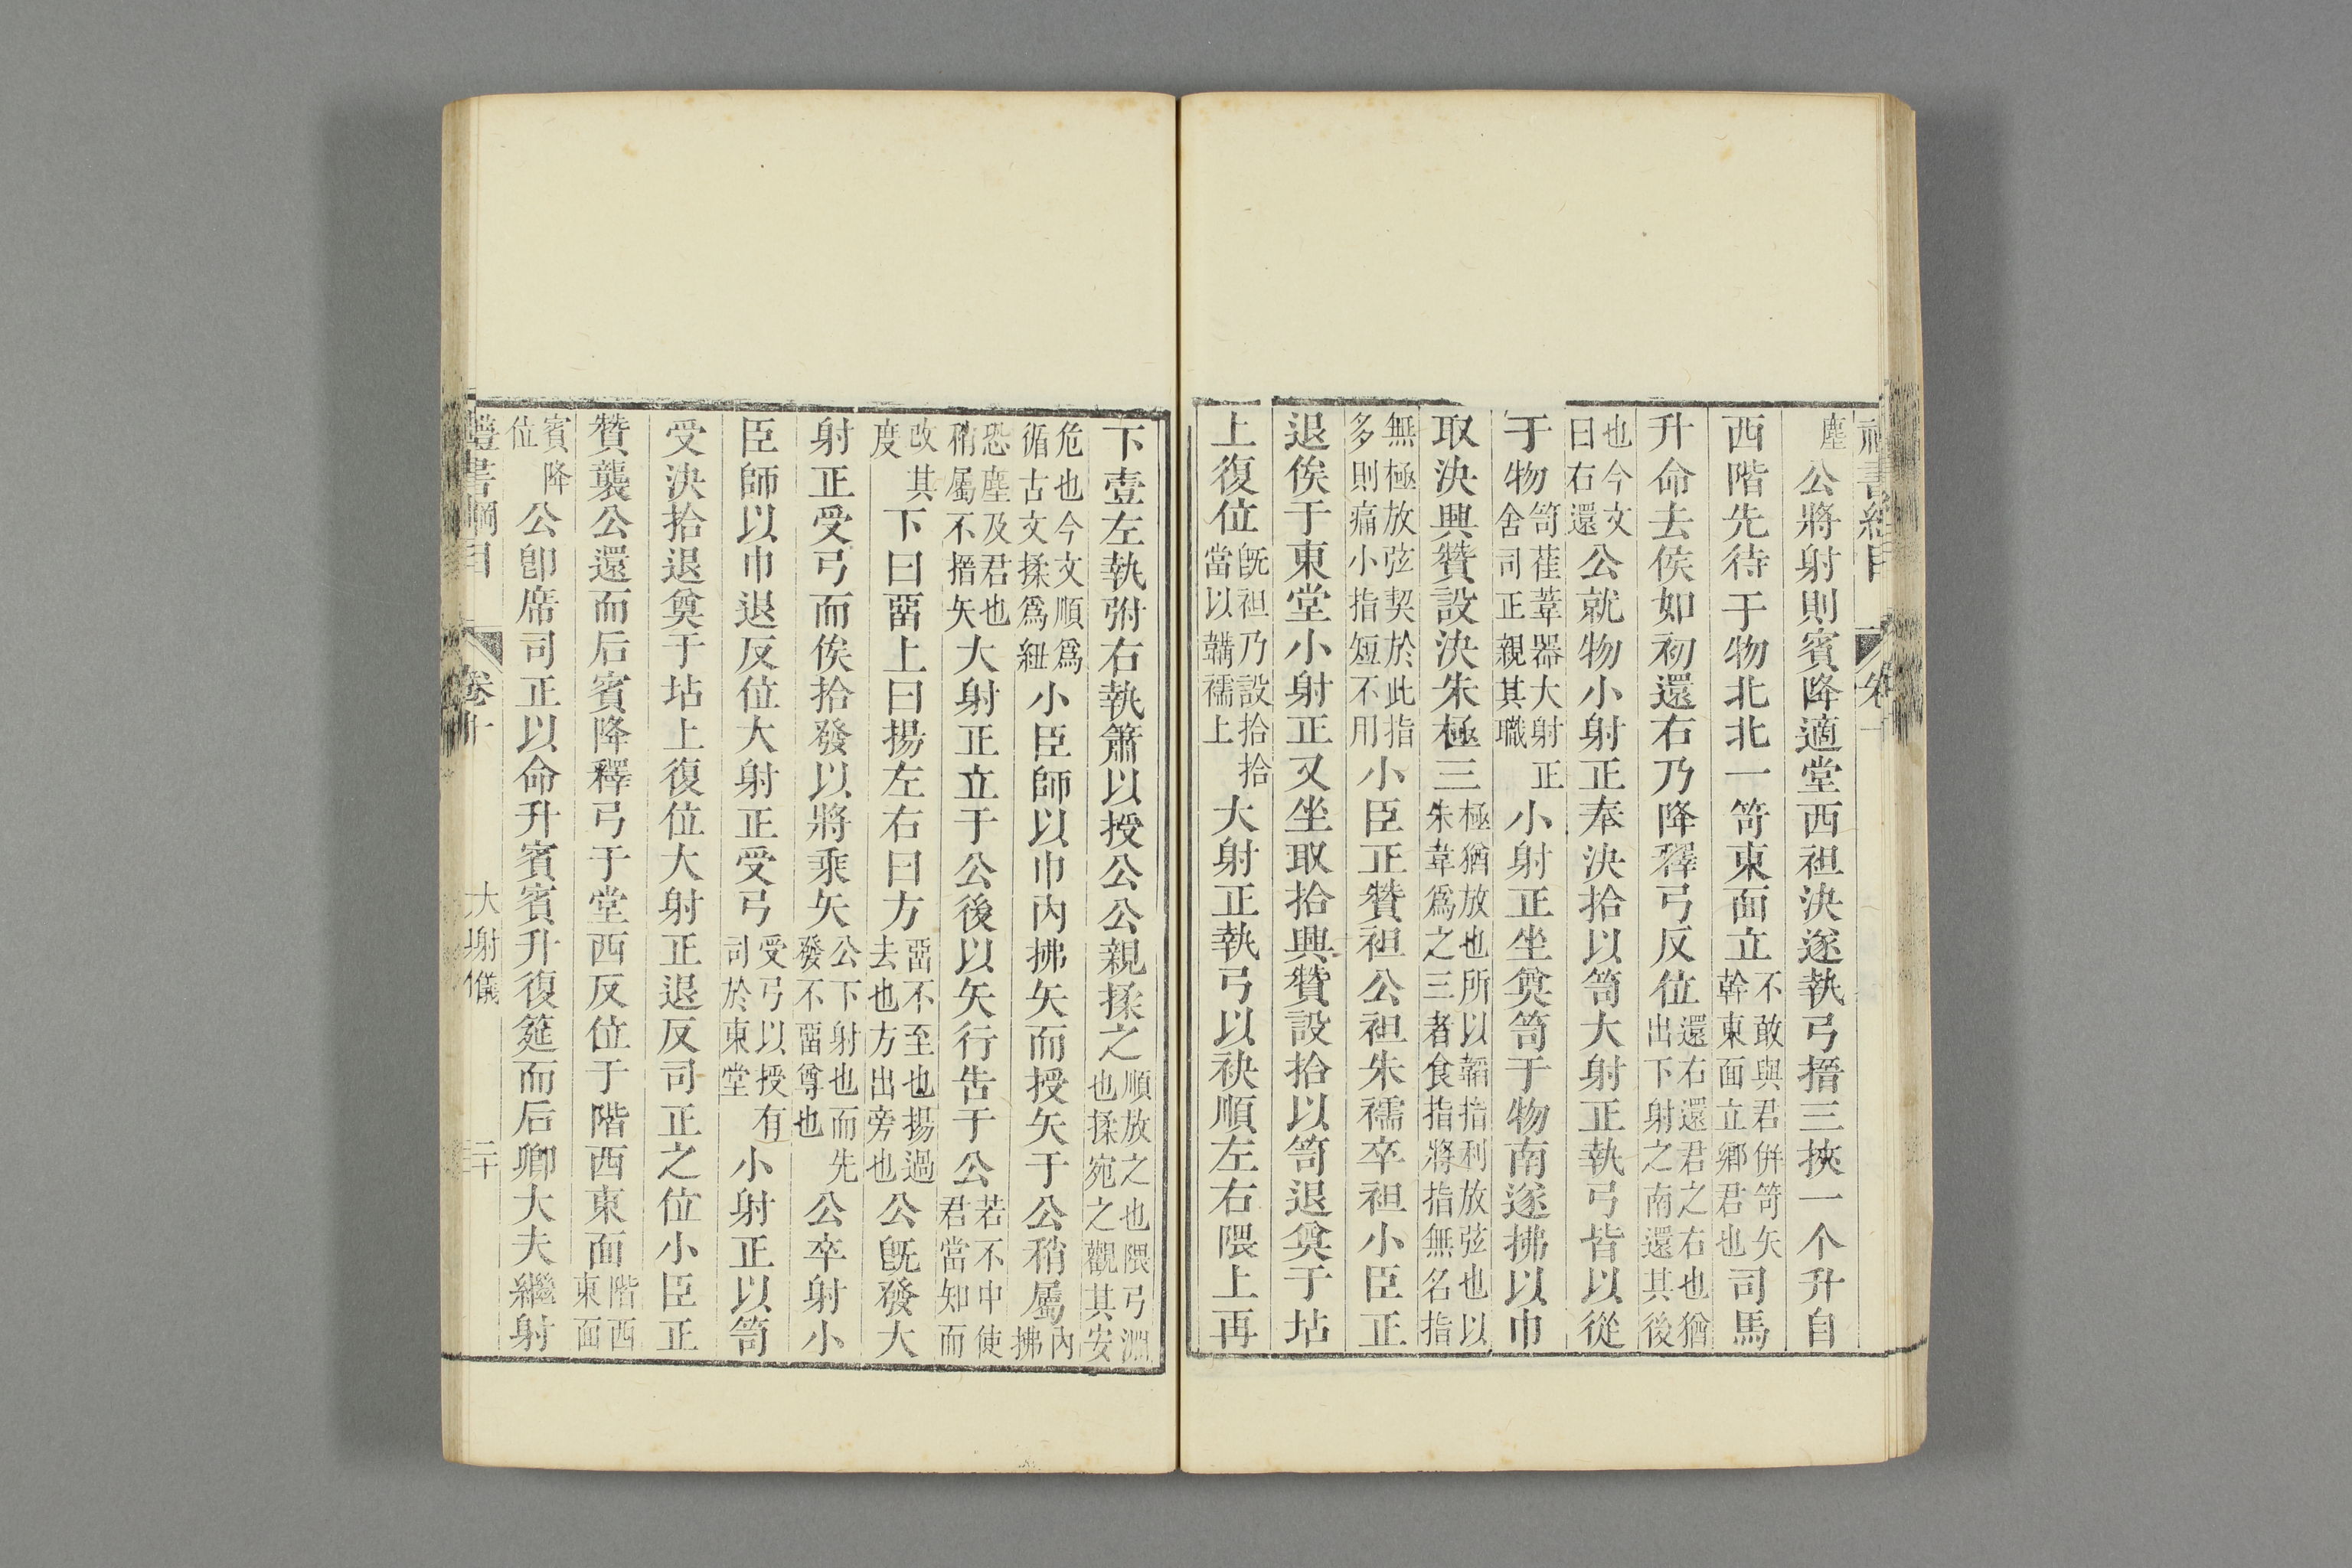 塵公將射則賓降適堂西袒決遂執弓搢三挾一个升自
西階先待于物北北一笴東面立不敢與君併笴矢幹東面立鄉君也司馬
升命去侯如初還右乃降釋弓反位還右還君之右也猶出下射之南還其後
也今文曰右還公就物小射正奉決拾以笥大射正執弓皆以從
于物笥萑葦器大射正舍司正親其職小射正坐奠笥于物南遂拂以巾
取決興贊設決朱極三極猶放也所以韜指利放弦也以朱韋爲之三者食指將指無名指
無極放弦契於此指多則痛小指短不用小臣正贊袒公袒朱襦卒袒小臣正
退俟于東堂小射正又坐取拾興贊設拾以笥退奠于坫
上復位既袒乃設拾拾當以韝襦上大射正執弓以袂順左右隈上再
下壹左執弣右執簫以授公公親揉之順放之也隈弓淵也揉宛之觀其安
危也今文順爲循古文揉爲紐小臣師以巾內拂矢而授矢于公稍屬內拂
恐塵及君也稍屬不搢矢大射正立于公後以矢行告于公若不中使君當知而
改其度下曰畱上曰揚左右曰方畱不至也揚過去也方出旁也公既發大
射正受弓而俟拾發以將乘矢公下射也而先發不畱尊也公卒射小
臣師以巾退反位大射正受弓受弓以授有司於東堂小射正以笥
受決拾退奠于坫上復位大射正退反司正之位小臣正
贊襲公還而后賓降釋弓于堂西反位于階西東面階西東面
賓降位公卽席司正以命升賓賓升復筵而后卿大夫繼射
禮書綱目 卷十 大射儀 二十